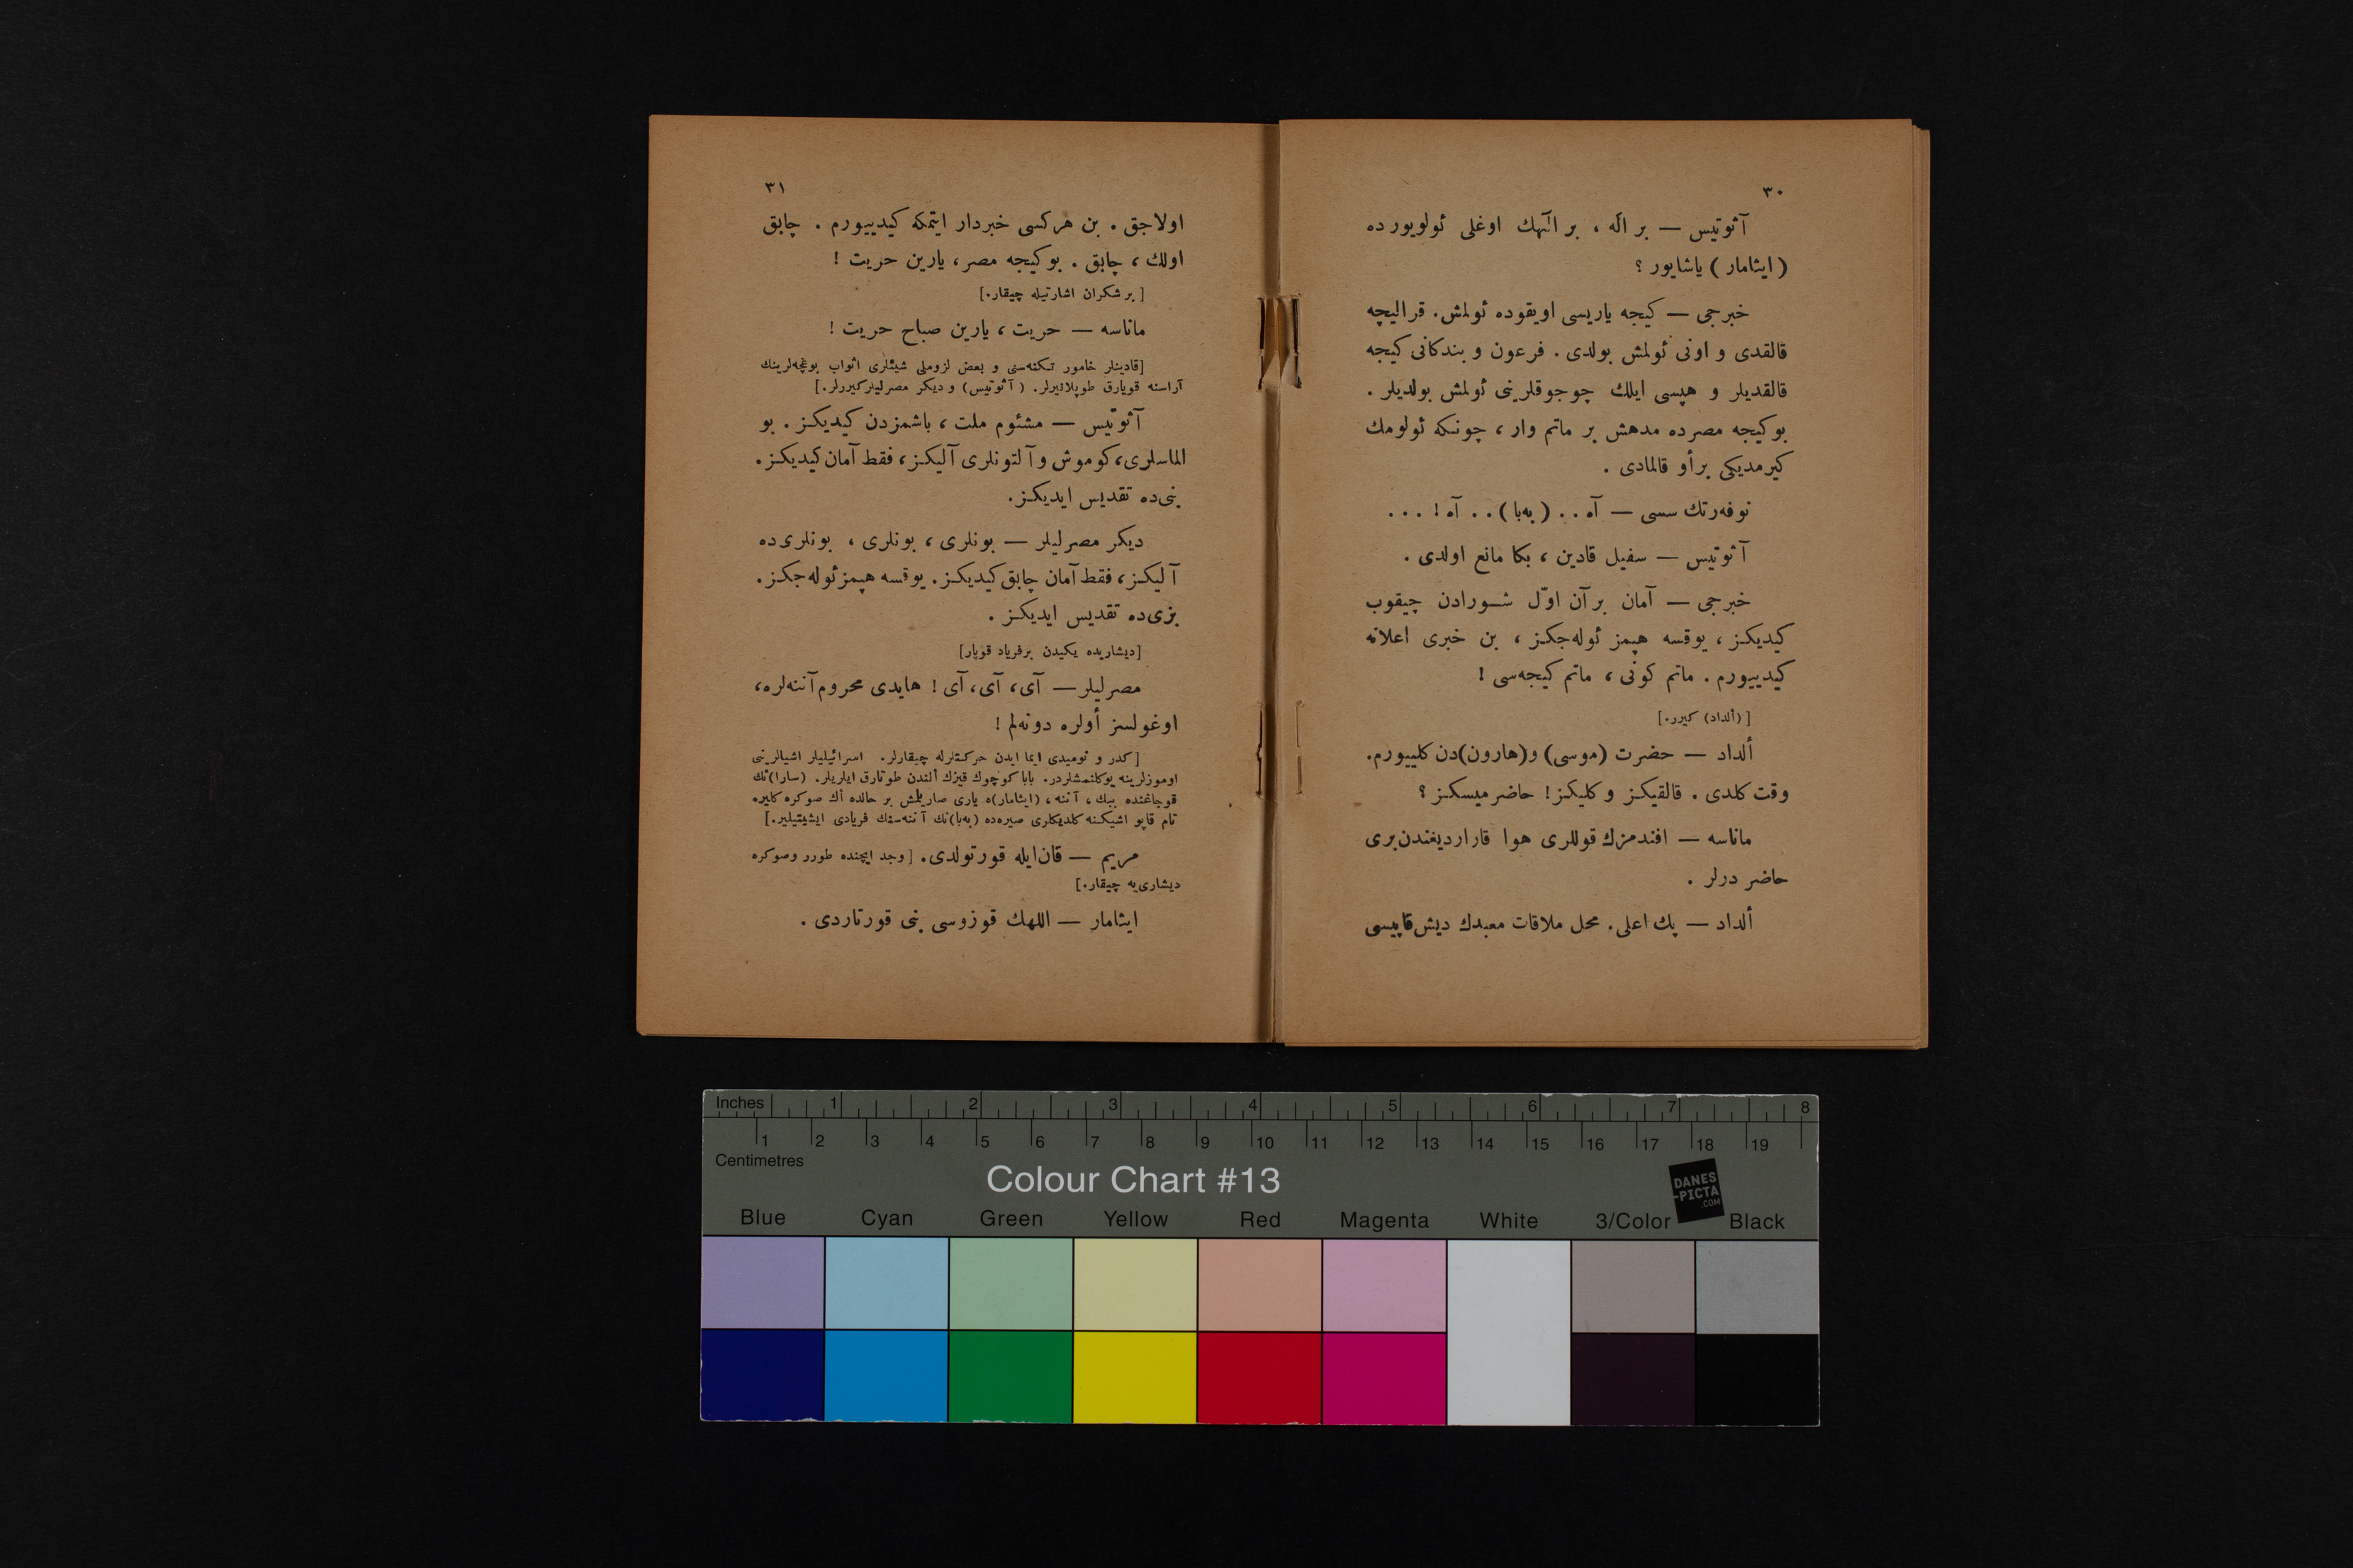 ٣٠
آئوتیس — بر اله ، بر الٓهك اوغلی ئولویور ده
( ایثامار ) یاشایور ؟
خبرجی — كیجه یاریسی اویقوده ئولمش. قرالیچه
قالقدی و اونی ئولمش بولدی . فرعون و بندكانی كیجه
قالقدیلر و هپسی ایلك چوجوقلرینی ئولمش بولدیلر .
بو كیجه مصرده مدهش بر ماتم وار ، چونكه ئولومك
كیرمدیكی بر أو قالمادی .
نوفه‌رتك سسی — آه . . ( به‌با ) . . آه ! . . .
آئوتیس — سفیل قادین ، بكا مانع اولدی .
خبرجی — آمان بر آن اوّل شورادن چیقوب
كیدیكز ، یوقسه هپمز ئوله‌جكز ، بن خبری اعلانه
كیدییورم . ماتم كونی ، ماتم كیجه‌سی !
[ (ألداد) كیرر. ]
ألداد — حضرت (موسی) و(هارون)دن كلییورم.
وقت كلدی . قالقیكز و كلیكز ! حاضر میسكز ؟
ماناسه — افندمزك قوللری هوا قاراردیغندن بری
حاضر درلر .
ألداد — پك اعلی. محل ملاقات معبدك دیش قاپیسی
٣١
اولاجق . بن هركسی خبردار ایتمكه كیدییورم . چابق
اولك ، چابق . بو كیجه مصر، یارین حریت !
[ بر شكران اشارتیله چیقار. ]
ماناسه — حریت ، یارین صباح حریت !
[قادینلر خامور تكنه‌سنی و بعض لزوملی شیئلری اثواب بوغچه‌لرینك
آراسنه قویارق طوپلانیرلر. ( آئوتیس) و دیكر مصرلیلر كیررلر.]
آئوتیس — مشئوم ملت ، باشمزدن كیدیكز . بو
الماسلری، كوموش و آلتونلری آلیكز، فقط آمان كیدیكز .
بنی‌ده تقدیس ایدیكز.
دیكر مصرلیلر — بونلری ، بونلری ، بونلری ده
آلیكز، فقط آمان چابق كیدیكز. یوقسه هپمز ئوله‌جكز .
بزی‌ده تقدیس ایدیكز .
[دیشاریده یكیدن بر فریاد قوپار]
مصرلیلر — آی، آی، آی ! هایدی محروم آننه‌لره،
اوغولسز أولره دونه‌لم !
[ كدر و نومیدی ایما ایدن حركتلرله چیقارلر. اسرائیلیلر اشیالرینی
اوموزلرینه یوكلنمشلردر. بابا كوچوك قیزك ألندن طوتارق ایلریلر. (سارا)نك
قوجاغنده ببك ، آننه ، (ایثامار)ه یاری صاریلمش بر حالده أك صوكره كلیره
تام قاپو اشیكنه كلدیكلری صیره‌ده (به‌با)نك آننه‌سنك فریادی ایشیتیلیر.]
مریم — قان ایله قورتولدی. [ وجد ایچنده طورر وصوكره
دیشاری‌یه چیقار. ]
ایثامار — اللهك قوزوسی بنی قورتاردی .
Inches 1 2 3 4 5 6 7 8
1 2 3 4 5 6 7 8 9 10 11 12 13 14 15 16 17 18 19
Centimetres
Colour Chart #13
DANES
-PICTA
.COM
Blue Cyan Green Yellow Red Magenta White 3/Color Black